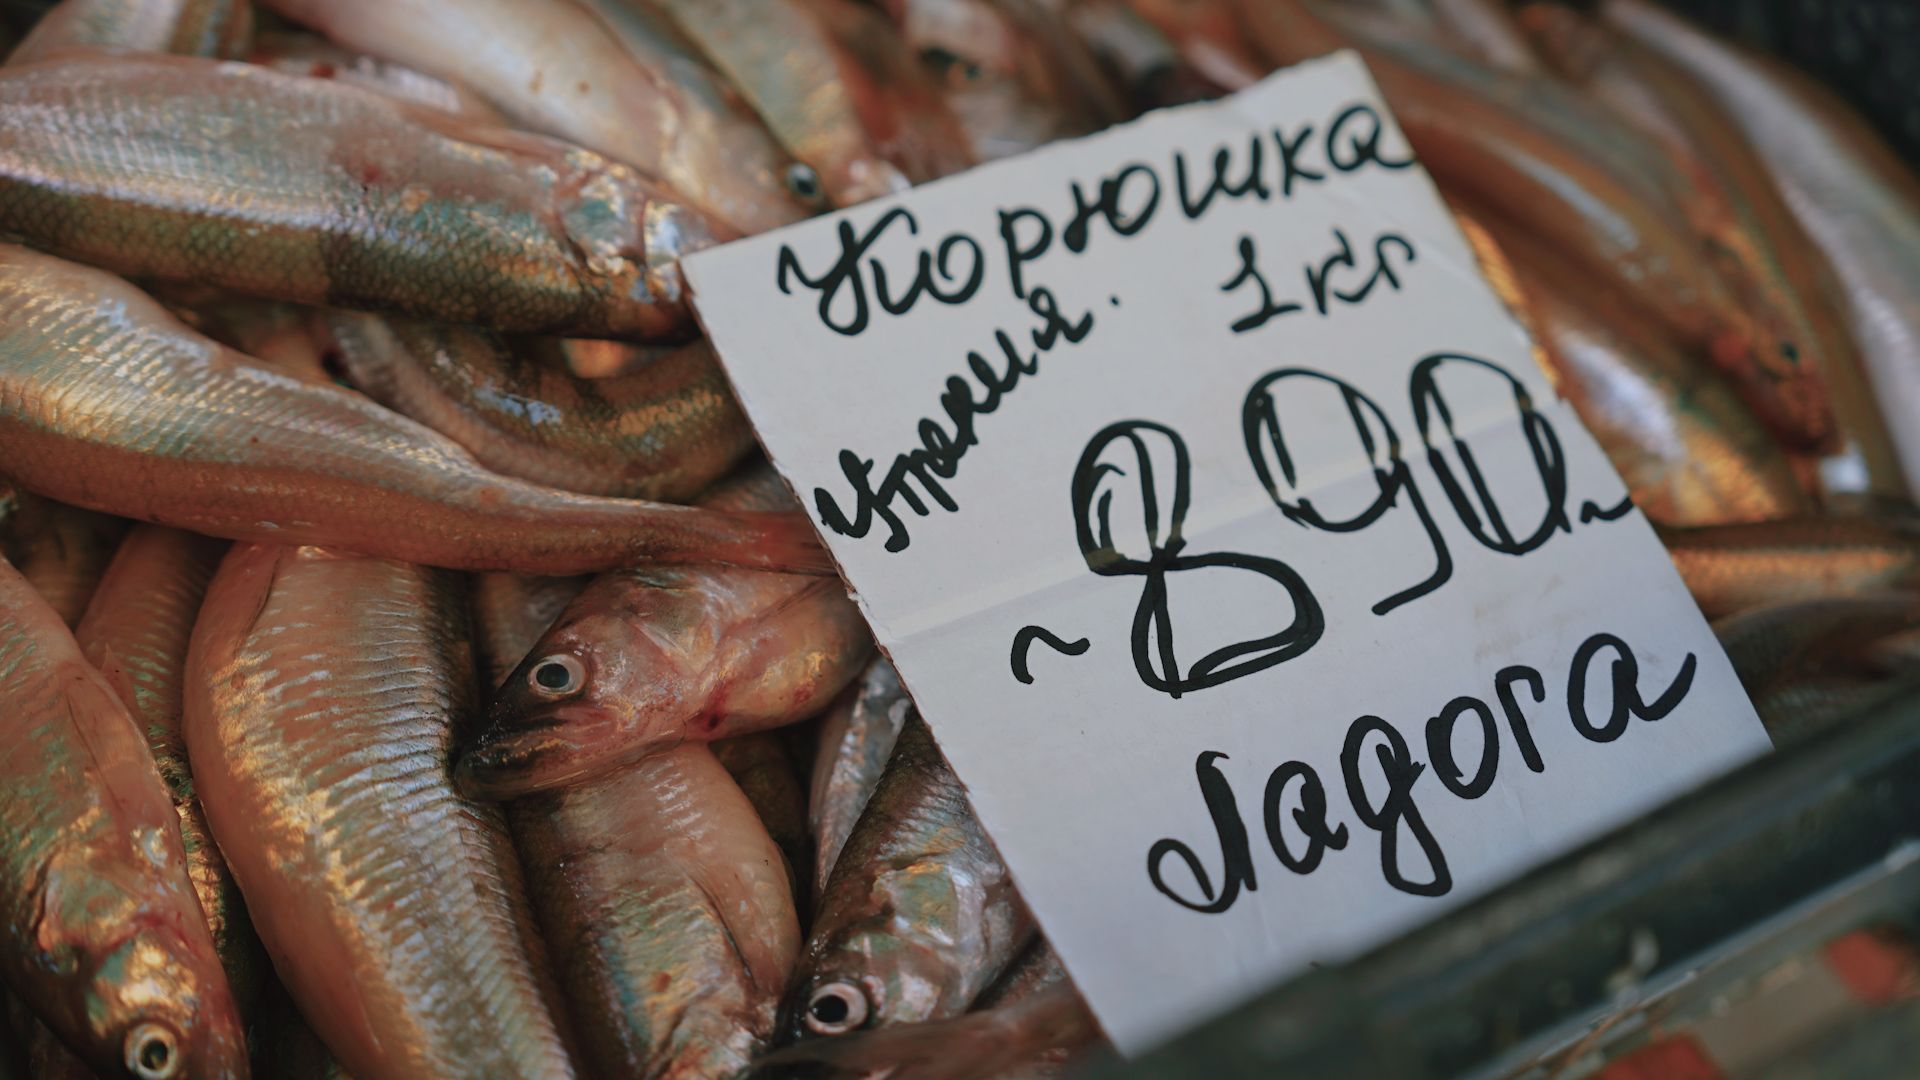 Корюшка
утренняя. 1кг
~890~
Ладога